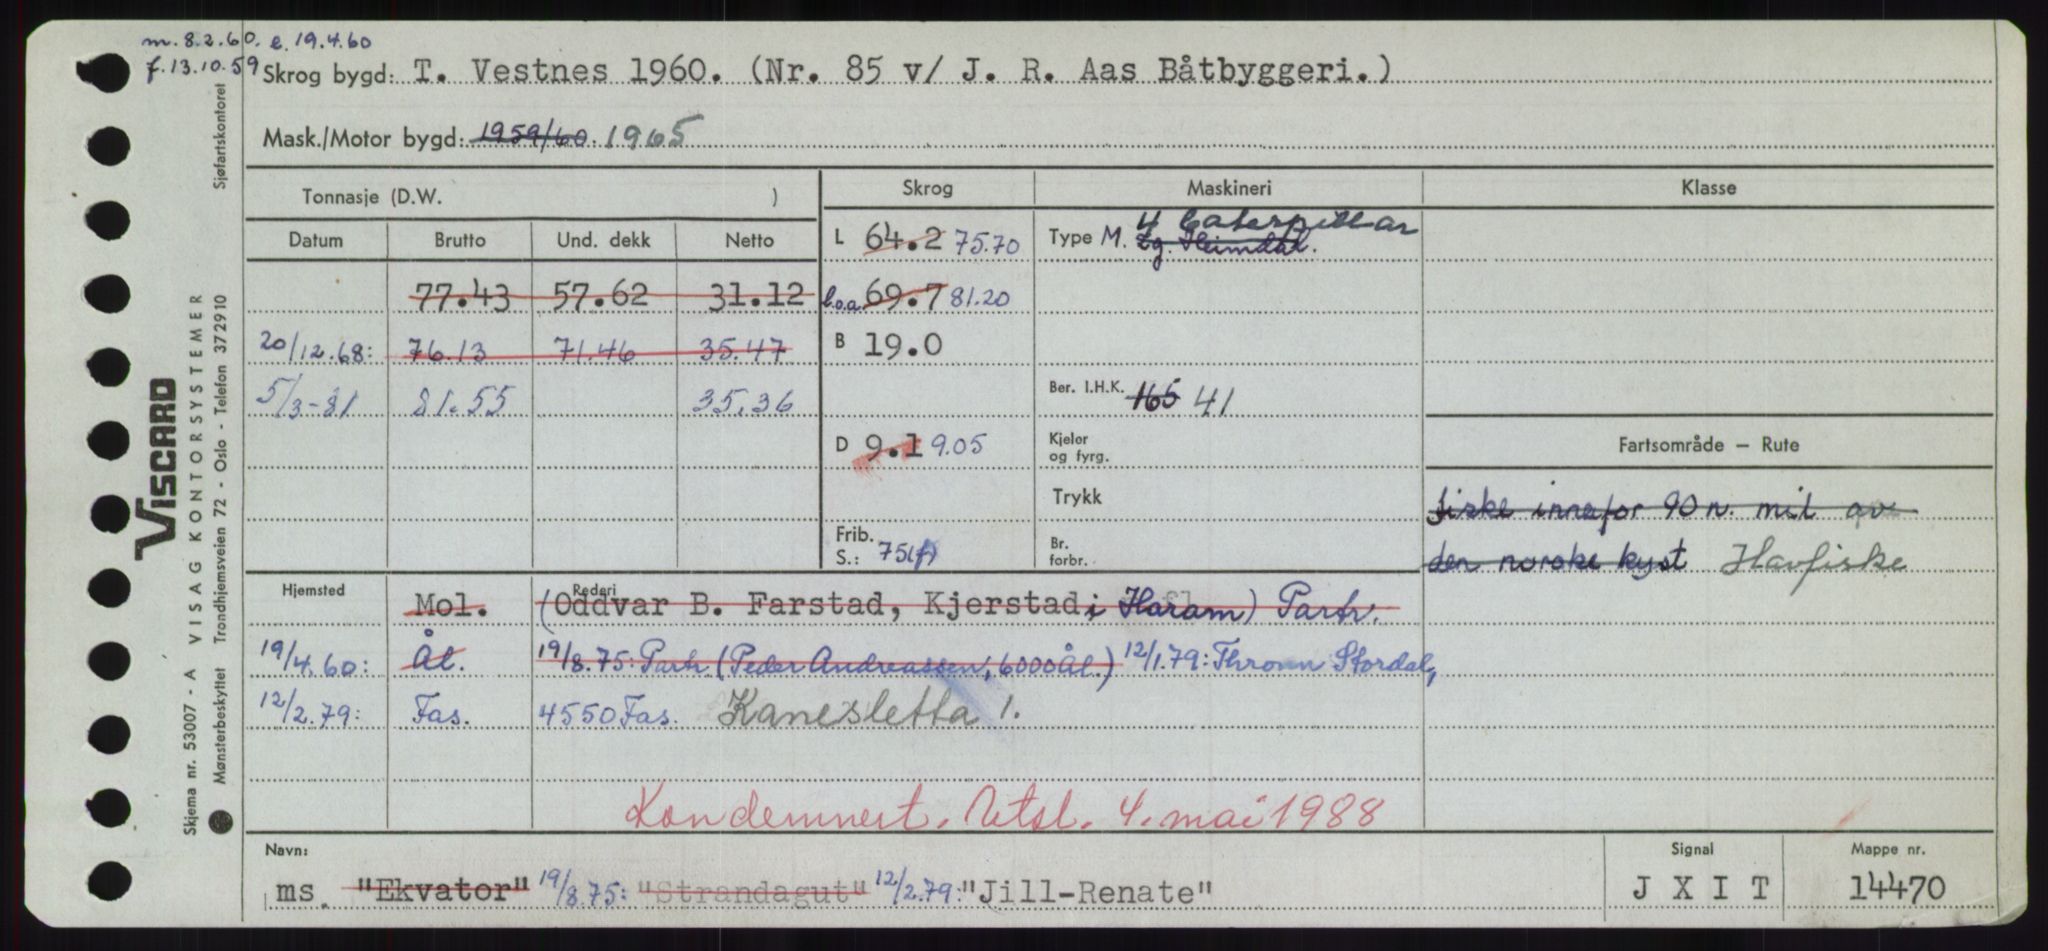 m. 8.2.60. e. 19.4.60
f. 13.10.59 Skrog bygd: T. Vestnes 1960. (Nr. 85 v/ J. R. Aas Båtbyggeri.)
Mask./Motor bygd: 1959/60. 1965
Tonnasje (D.W. ) Skrog Maskineri Klasse
Datum Brutto Und. dekk Netto L 64.2 75.70 Type M. 4 Caterpillar
2g. Heimdal.
77.43 57.62 31.12 l.o.a 69.7 81.20
20/12.68: 76.13 71.46 35.47 B 19.0
5/3-81 81.55 35.36 Ber. I.H.K. 165 41
D 9.1 9.05 Kjeler og fyrg. Fartsområde — Rute
Trykk fiske innafor 90 n. mil av
Frib. S.: 75(f) Br. forbr. den norske kyst Havfiske
Hjemsted Rederi
Mol. (Oddvar B. Farstad, Kjerstad i Haram) Partr.
19/4.60: Ål. 19/8.75: Partr. (Peder Andreassen, 6000 Ål.) 12/1.79: Thronn Stordal,
12/2.79: Fas. 4550 Fas. Kanesletta 1.
Kondemnert. Utsl. 4. mai 1988
Navn: Signal Mappe nr.
ms. "Ekvator" 19/8.75: "Strandagut" 12/2.79: "Jill-Renate" J X I T 14470
VISCARD
VISAG KONTORSYSTEMER
Sjøfartskontoret
Skjema nr. 53007 - A
Mønsterbeskyttet Trondhjemsveien 72 - Oslo - Telefon 372910